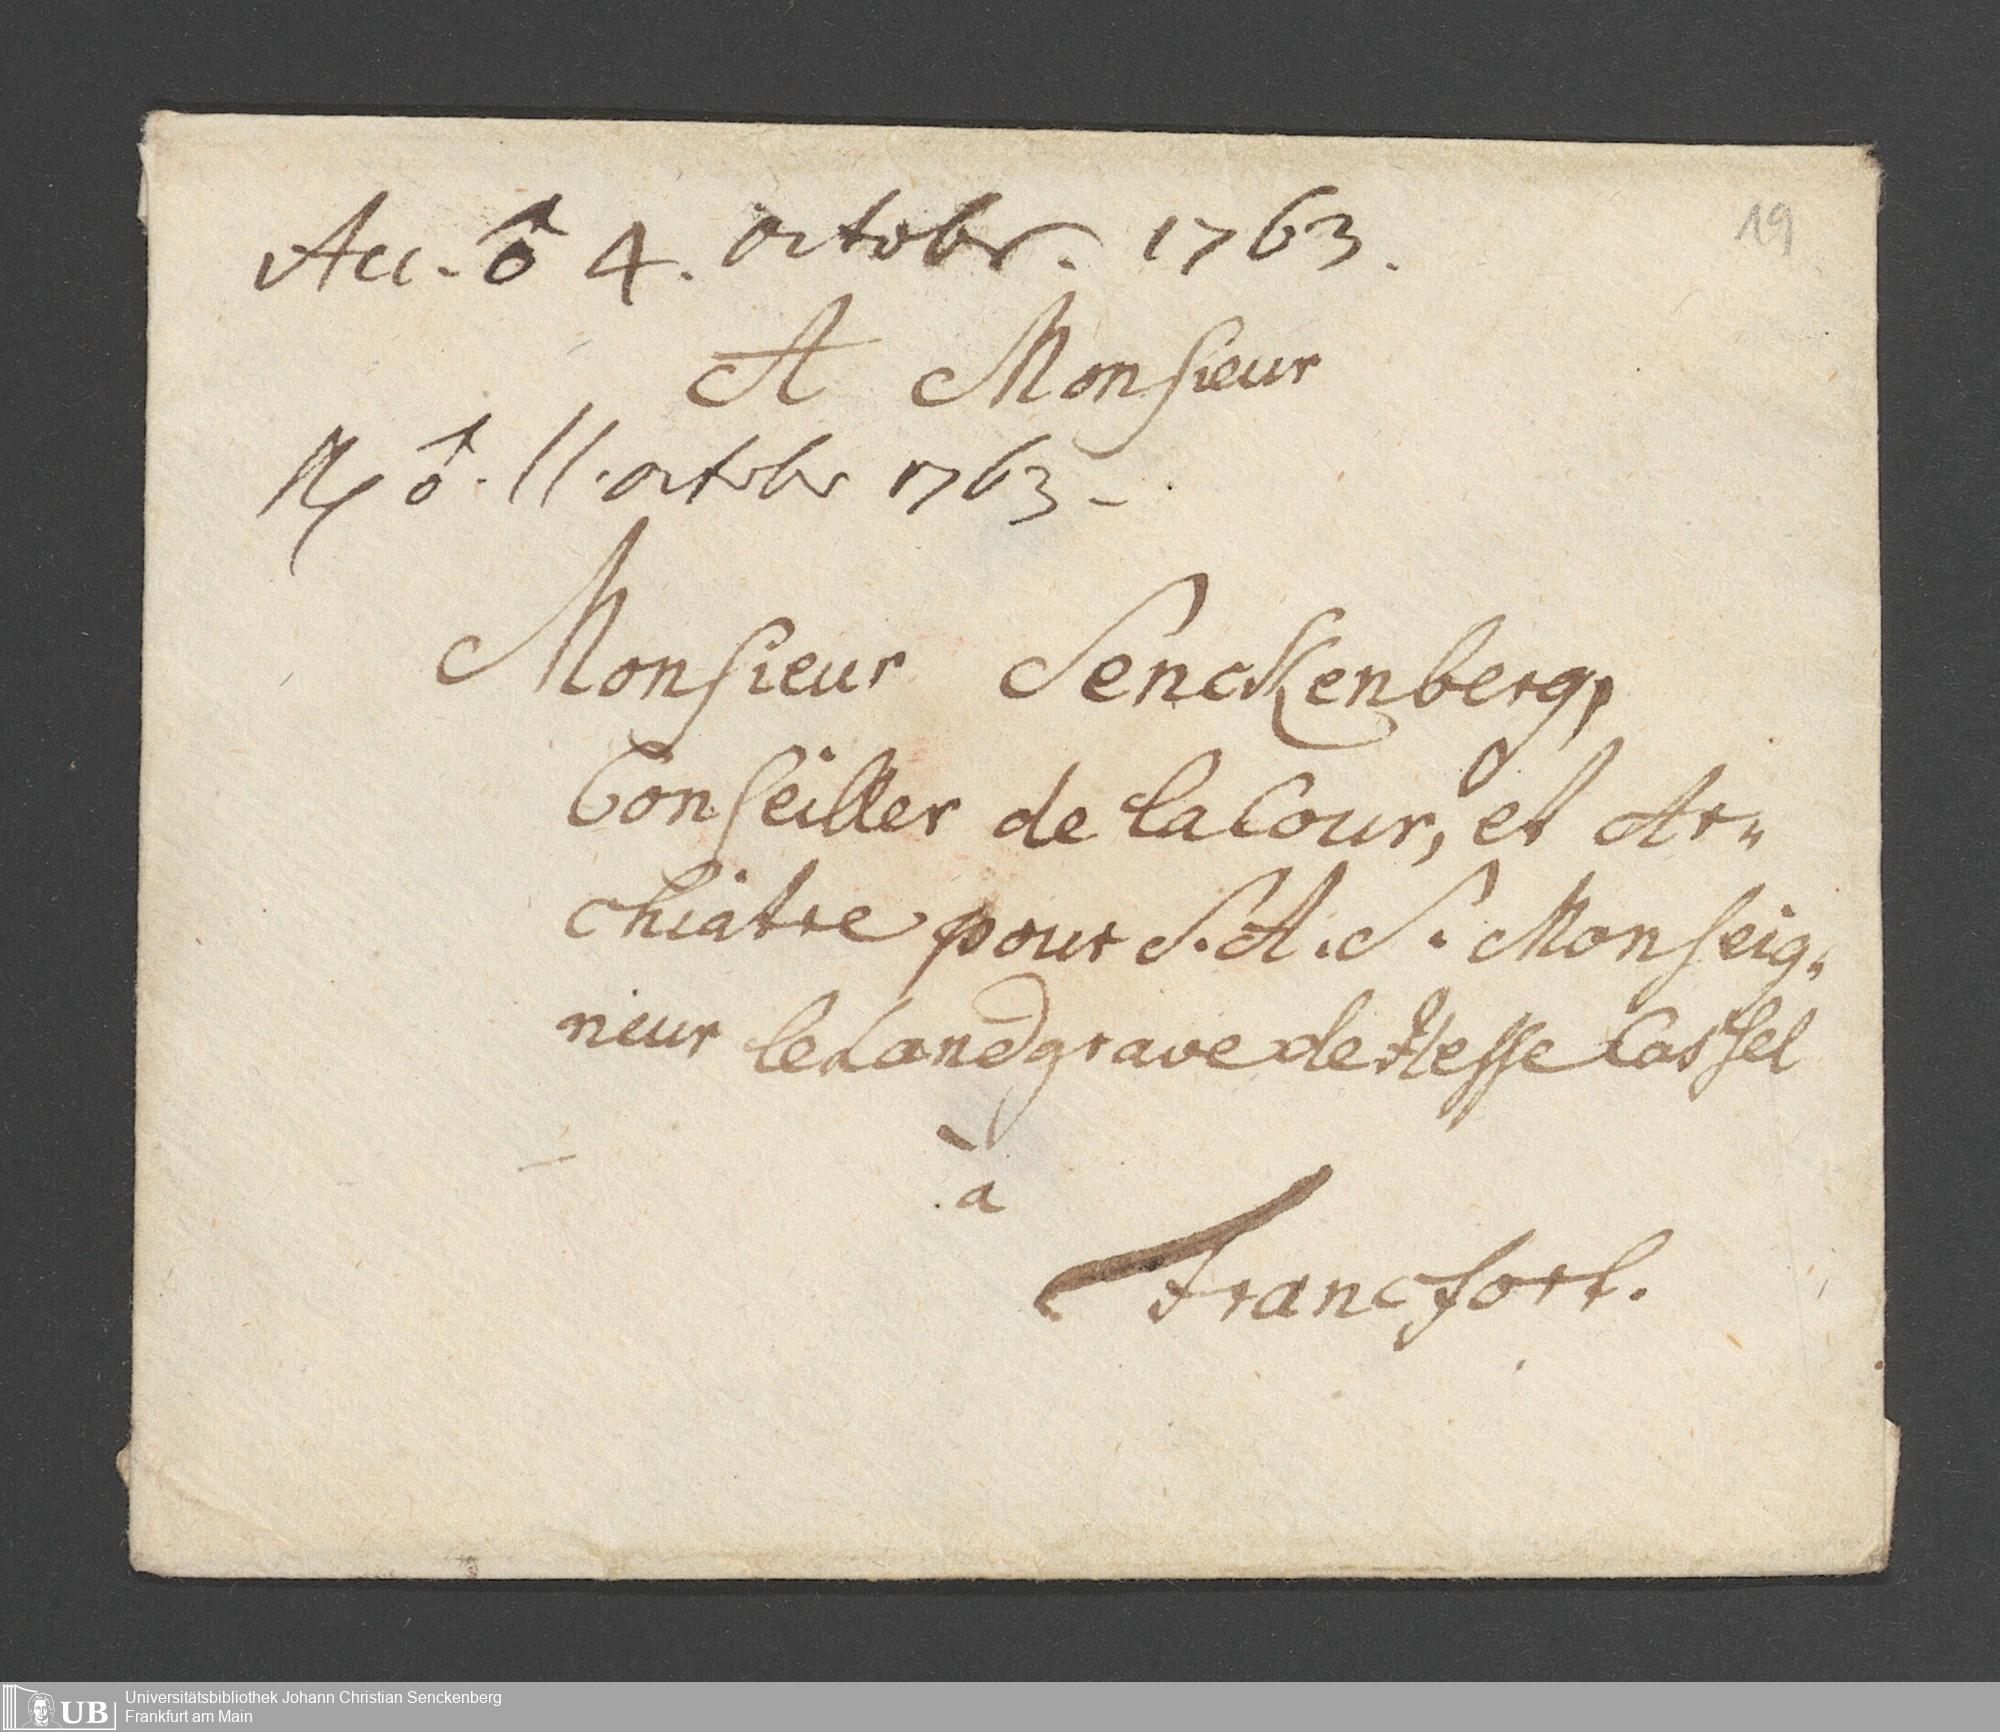 Acc. ♂ 4. octobr. 1763.
19
A Monsieur
R ♂. 11. octobr 1763 -
Monsieur Senckenberg,
Conseiller de la Cour, et Ar„
chiatre pour S. A. S. Monseig„
neur le Landgrave de Hesse Cassel
à
Francfort.
UB Universitätsbibliothek Johann Christian Senckenberg
Frankfurt am Main